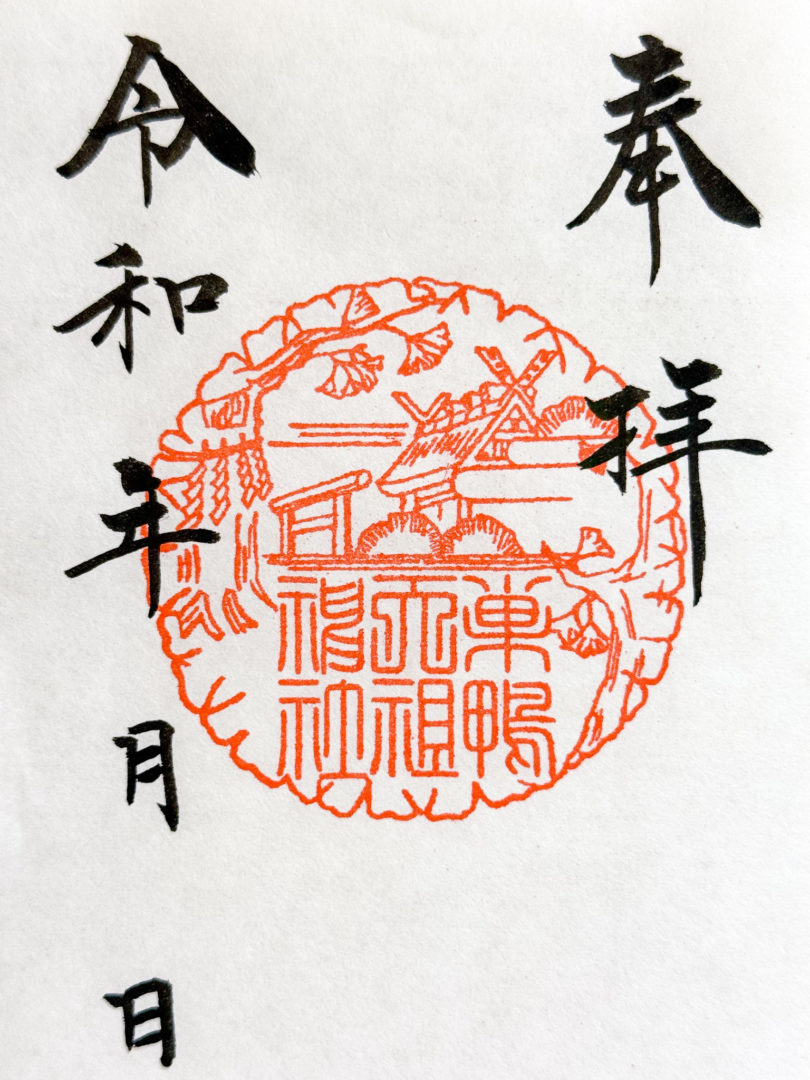 奉拝
巣鴨
天祖
神社
令和年月日